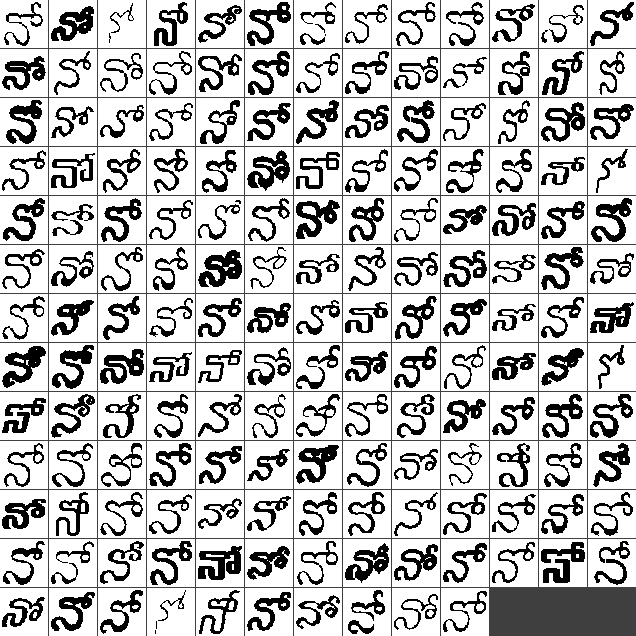 నా నా నా నా నా నా నా నా నా నా నా నా నా
నా నా నా నా నా నా నా నా నా నా నా నా నా
నా నా నా నా నా నా నా నా నా నా నా నా నా
నా నా నా నా నా నా నా నా నా నా నా నా నా
నా నా నా నా నా నా నా నా నా నా నా నా నా
నా నా నా నా నా నా నా నా నా నా నా నా నా
నా నా నా నా నా నా నా నా నా నా నా నా నా
నా నా నా నా నా నా నా నా నా నా నా నా నా
నా నా నా నా నా నా నా నా నా నా నా నా నా
నా నా నా నా నా నా నా నా నా నా నా నా నా
నా నా నా నా నా నా నా నా నా నా నా నా నా
నా నా నా నా నా నా నా నా నా నా నా నా నా
నా నా నా నా నా నా నా నా నా నా